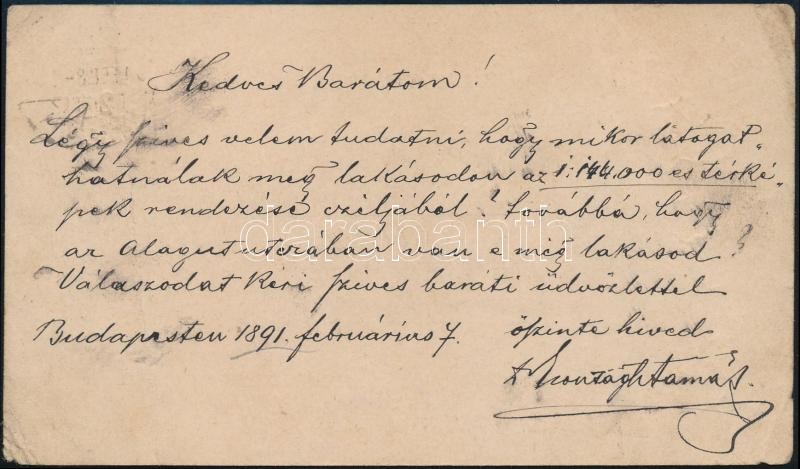 Kedves Barátom!
Légy szives velem tudatni, hogy mikor látogat„
hatnálak meg lakásodon az 1:144.000 es térké„
pek rendezése czéljából? továbbá, hogy
az Alagut utczában van e még lakásod?
Válaszodat kéri szives baráti üdvözlettel
Budapesten 1891. februárius 7. őszinte hived
Tamás.
darabanth